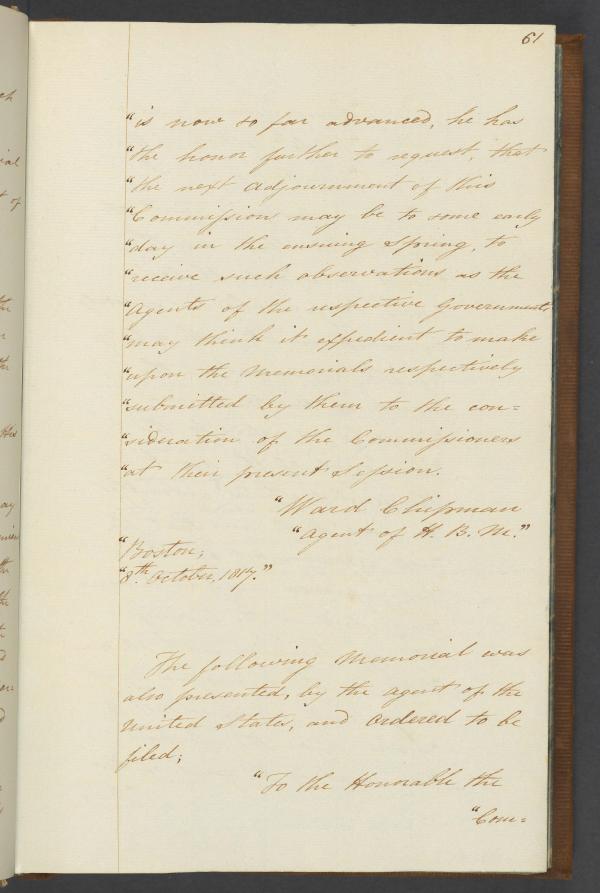 61
"is now so far advanced, he has
"the honor further to request, that
"the next adjournment of this
"Commission may be to some early
"day in the ensuing Spring, to
"receive such observations as the
"Agents of the respective Governments
"may think it expedient to make
"upon the Memorials respectively
"submitted by them to the con=
"sideration of the Commissioners
"at their present Session.
"Ward Chipman
"Agent of H. B. M."
"Boston,
"8th October, 1817."
The following Memorial was
also presented, by the agent of the
United States, and Ordered to be
filed;
"To the Honorable the
"Com=